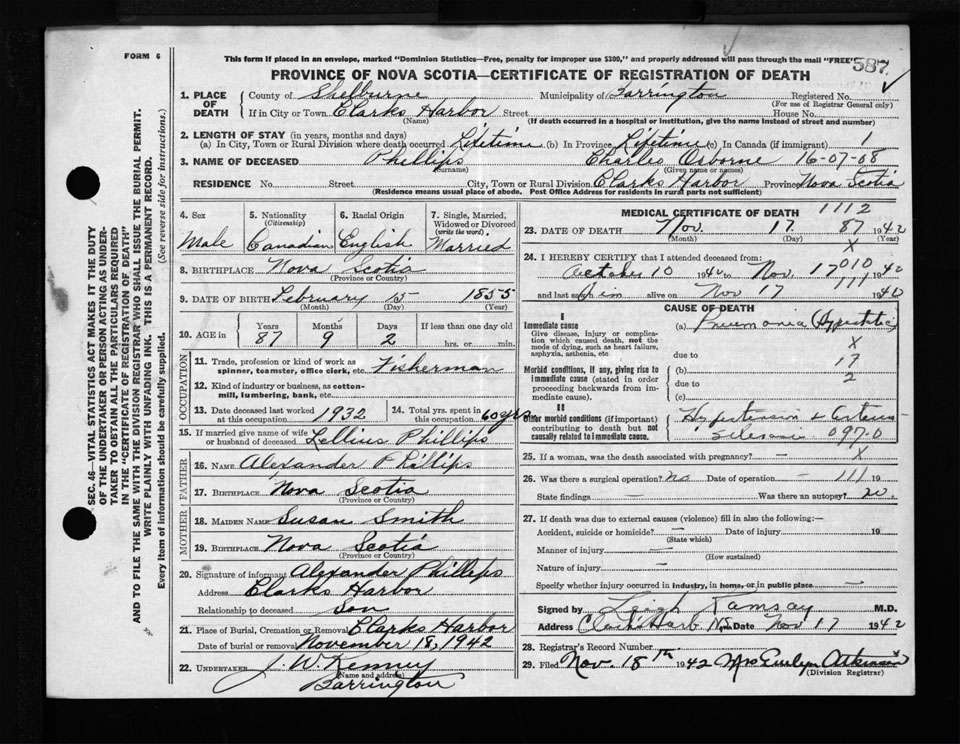 FORM 6
This form if placed in an envelope, marked "Dominion Statistics—Free, penalty for improper use $300," and properly addressed will pass through the mail "FREE"
587
PROVINCE OF NOVA SCOTIA—CERTIFICATE OF REGISTRATION OF DEATH
SEC. 46—VITAL STATISTICS ACT MAKES IT THE DUTY
OF THE UNDERTAKER OR PERSON ACTING AS UNDER-
TAKER TO OBTAIN ALL THE PARTICULARS REQUIRED
IN THE "CERTIFICATE OF REGISTRATION OF DEATH"
AND TO FILE THE SAME WITH THE DIVISION REGISTRAR WHO SHALL ISSUE THE BURIAL PERMIT.
WRITE PLAINLY WITH UNFADING INK. THIS IS A PERMANENT RECORD.
Every item of information should be carefully supplied. (See reverse side for instructions.)
1. PLACE OF DEATH County of Shelburne Municipality of Barrington Registered No.
(For use of Registrar General only)
If in City or Town Clarks Harbor Street House No.
(Name) (If death occurred in a hospital or institution, give the name instead of street and number)
2. LENGTH OF STAY (in years, months and days)
(a) In City, Town or Rural Division where death occurred Lifetime (b) In Province Lifetime (c) In Canada (if immigrant) 1
3. NAME OF DECEASED Phillips Charles Osborne 16-07-08
(Surname) (Given name or names)
RESIDENCE No. Street City, Town or Rural Division Clarks Harbor Province Nova Scotia
(Residence means usual place of abode. Post Office Address for residents in rural parts not sufficient)
4. Sex 5. Nationality (Citizenship) 6. Racial Origin 7. Single, Married, Widowed or Divorced (write the word).
Male Canadian English Married
8. BIRTHPLACE Nova Scotia
(Province or Country)
9. DATE OF BIRTH February 15 1855
(Month) (Day) (Year)
10. AGE in Years Months Days If less than one day old
87 9 2 hrs. or min.
OCCUPATION
11. Trade, profession or kind of work as
spinner, teamster, office clerk, etc. Fisherman
12. Kind of industry or business, as cotton-
mill, lumbering, bank, etc.
13. Date deceased last worked at this occupation 1932 14. Total yrs. spent in this occupation 60 yrs
15. If married give name of wife or husband of deceased Phillips
FATHER
16. NAME Alexander Phillips
17. BIRTHPLACE Nova Scotia
(Province or Country)
MOTHER
18. MAIDEN NAME Susan Smith
19. BIRTHPLACE Nova Scotia
(Province or Country)
20. Signature of informant Alexander Phillips
Address Clarks Harbor
Relationship to deceased Son
21. Place of Burial, Cremation or Removal Clarks Harbor
Date of burial or removal November 18, 1942
22. UNDERTAKER J. W. Kenney
(Name and address)
Barrington
MEDICAL CERTIFICATE OF DEATH 1112
23. DATE OF DEATH Nov. 17 87 1942
(Month) (Day) X (Year)
24. I HEREBY CERTIFY that I attended deceased from:
October 10 1942 to Nov. 17 010 1942
and last saw him alive on Nov 17 111 1940
CAUSE OF DEATH
I
Immediate cause (a) Pneumonia (Hypostatic)
Give disease, injury or complica-
tion which caused death, not the
mode of dying, such as heart failure,
asphyxia, asthenia, etc. X
due to
Morbid conditions, if any, giving rise to (b) 17
immediate cause (stated in order due to 2
proceeding backwards from im-
mediate cause). (c)
II
Other morbid conditions (if important)
contributing to death but not
causally related to immediate cause.
Hypertension & 097.0
25. If a woman, was the death associated with pregnancy? — X
26. Was there a surgical operation? no Date of operation — 111 19
State findings — Was there an autopsy? no.
27. If death was due to external causes (violence) fill in also the following:—
Accident, suicide or homicide? — Date of injury 19
(State which)
Manner of injury —
(How sustained)
Nature of injury —
Specify whether injury occurred in industry, in home, or in public place —
Signed by Leigh Ramsay M.D.
Address Clarks Harb N.S. Date Nov 17 1942
28. Registrar's Record Number
29. Filed Nov. 18th 1942 Mrs Evelyn Atkinson
(Division Registrar)